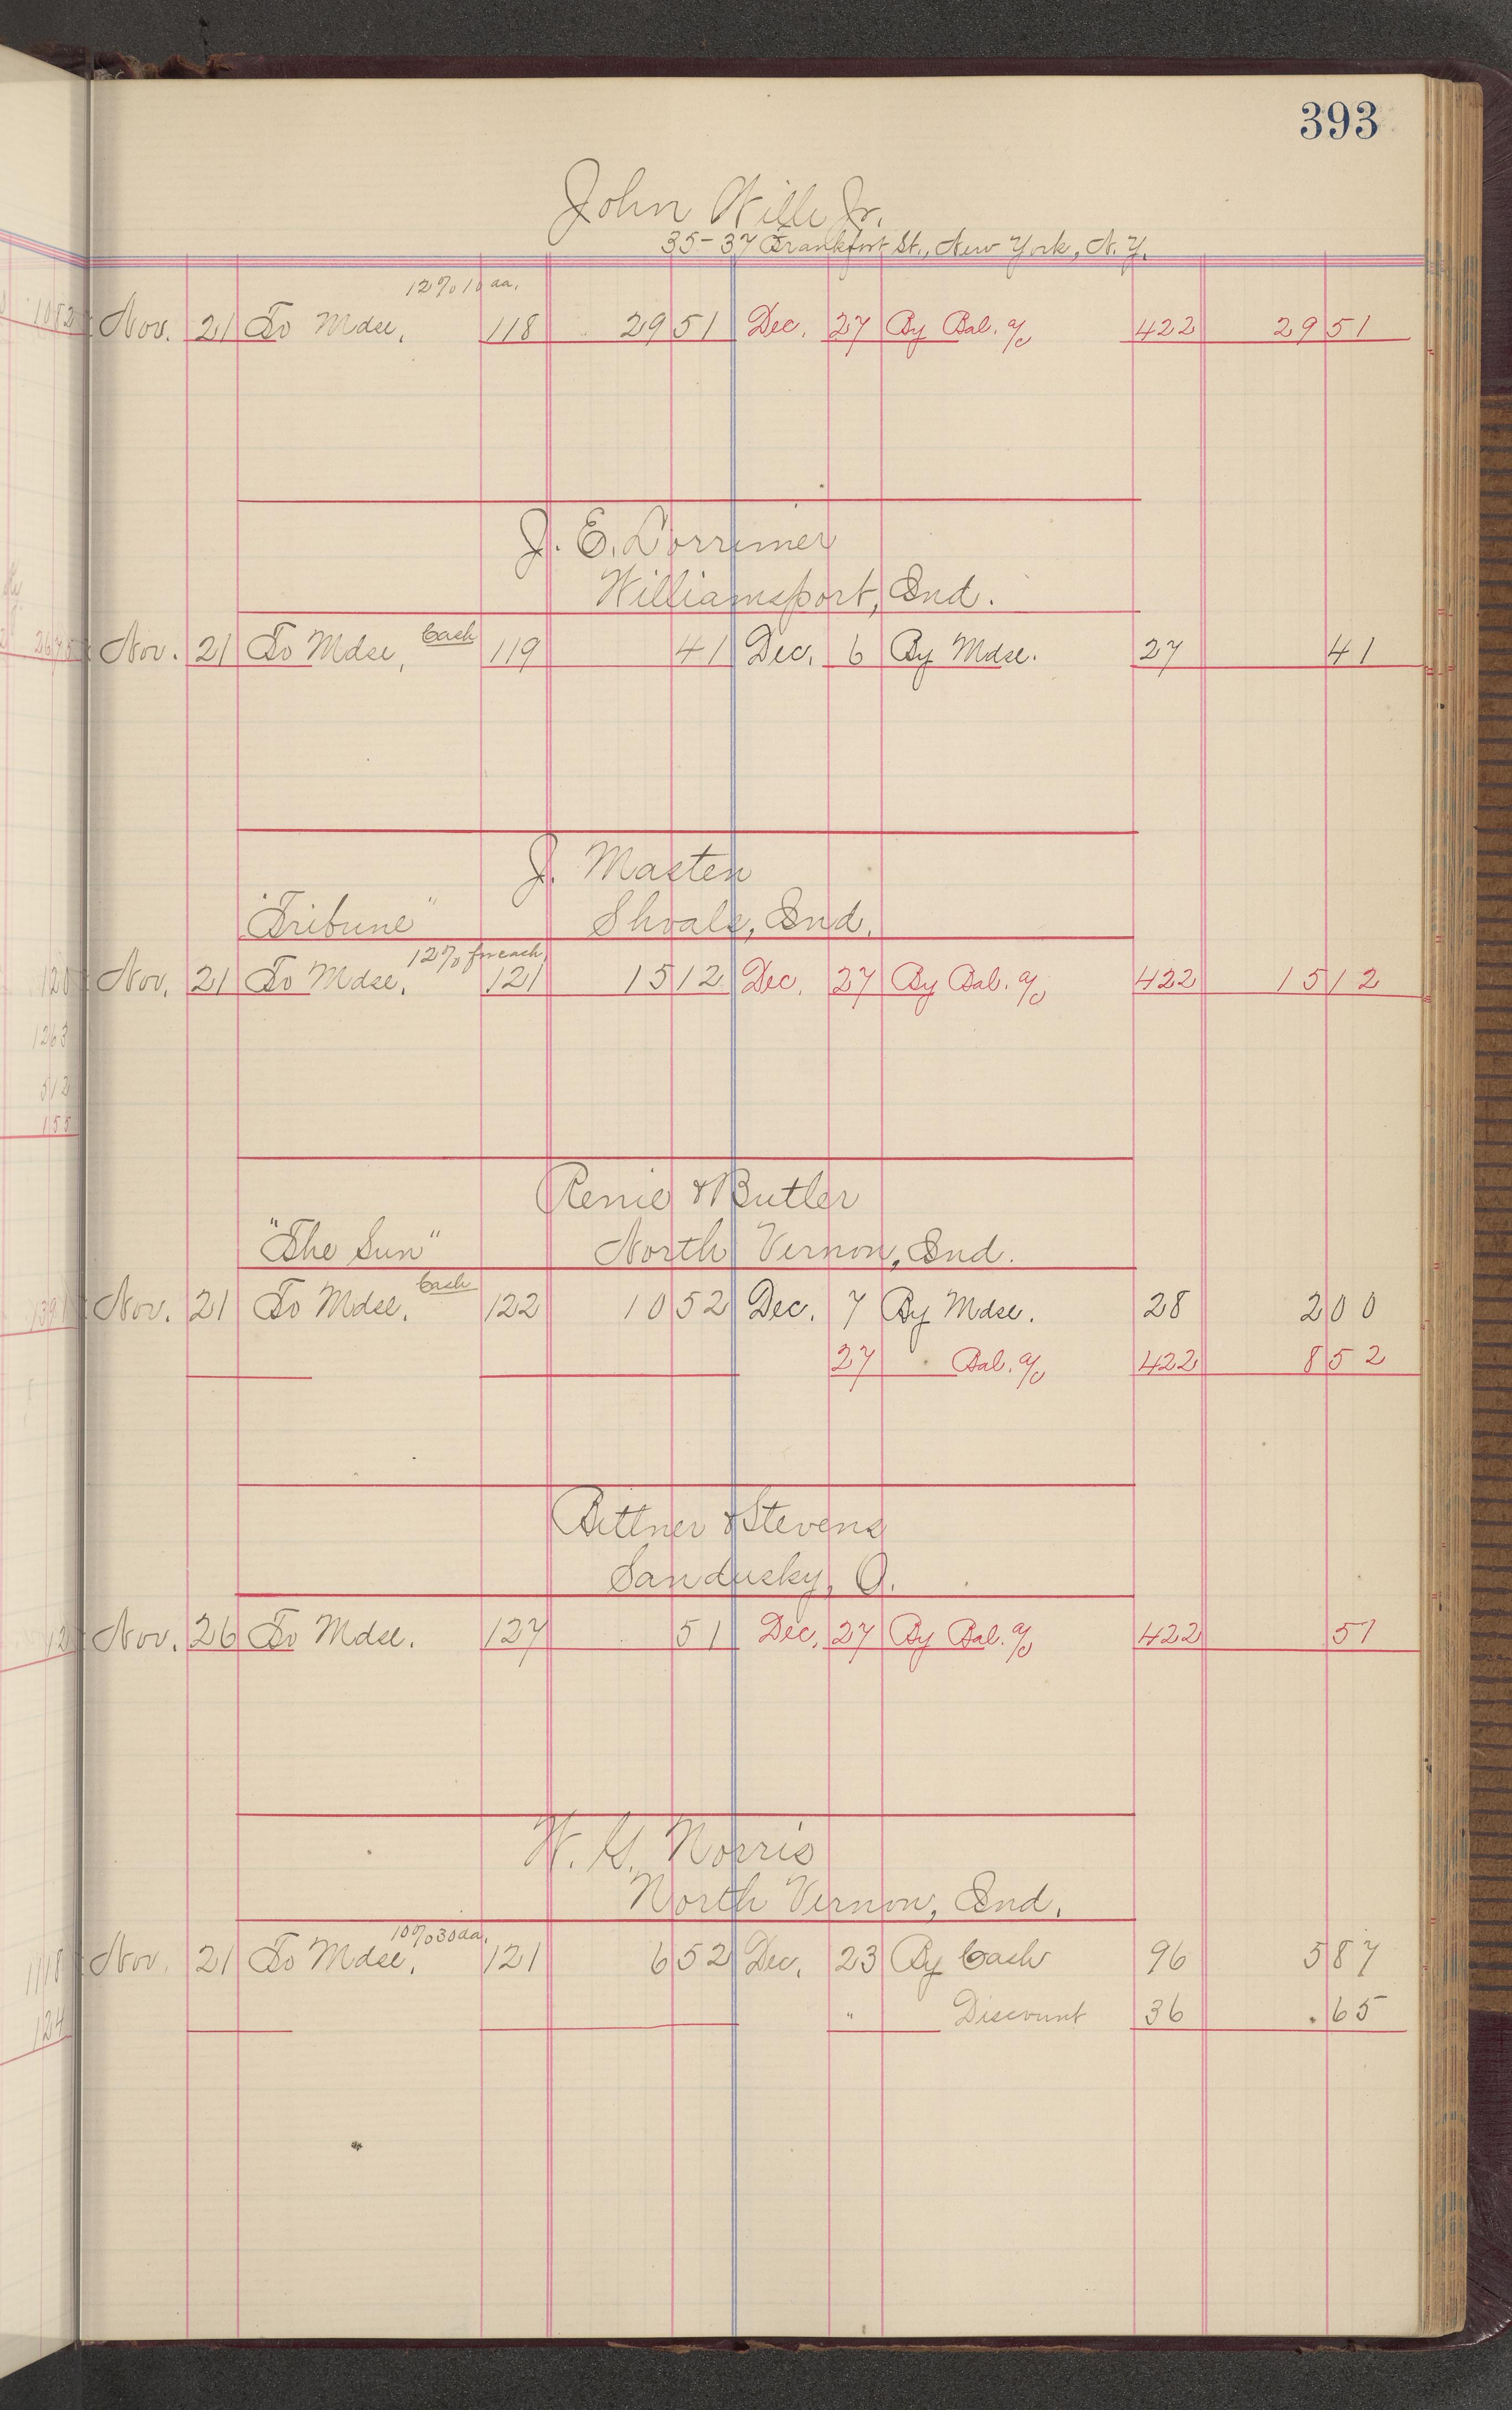 393
John Wille Jr.
35-37 Frankfort St., New York, N.Y.
12% 10 da.
Nov. 21 To Mdse. 118 29 51 Dec. 27 By Bal. a/c 422 29 51
J. E. Lorrimer
Williamsport, Ind.
Nov. 21 To Mdse, Cash 119 41 Dec. 6 By Mdse. 27 41
J. Masten
"Tribune" Shoals, Ind.
12% for cash
Nov. 21 To Mdse. 121 15 12 Dec. 27 By Bal. a/c 422 15 12
Renie & Butler
"The Sun" North Vernon, Ind.
Nov. 21 To Mdse. Cash 122 10 52 Dec. 7 By Mdse. 28 2 00
27 Bal. a/c 422 8 52
Bittner & Stevens
Sandusky, O.
Nov. 26 To Mdse. 127 51 Dec. 27 By Bal. a/c 422 51
W. G. Norris
North Vernon, Ind.
10% 30 da.
Nov. 21 To Mdse. 121 6 52 Dec. 23 By Cash 96 5 87
" Discount 36 .65